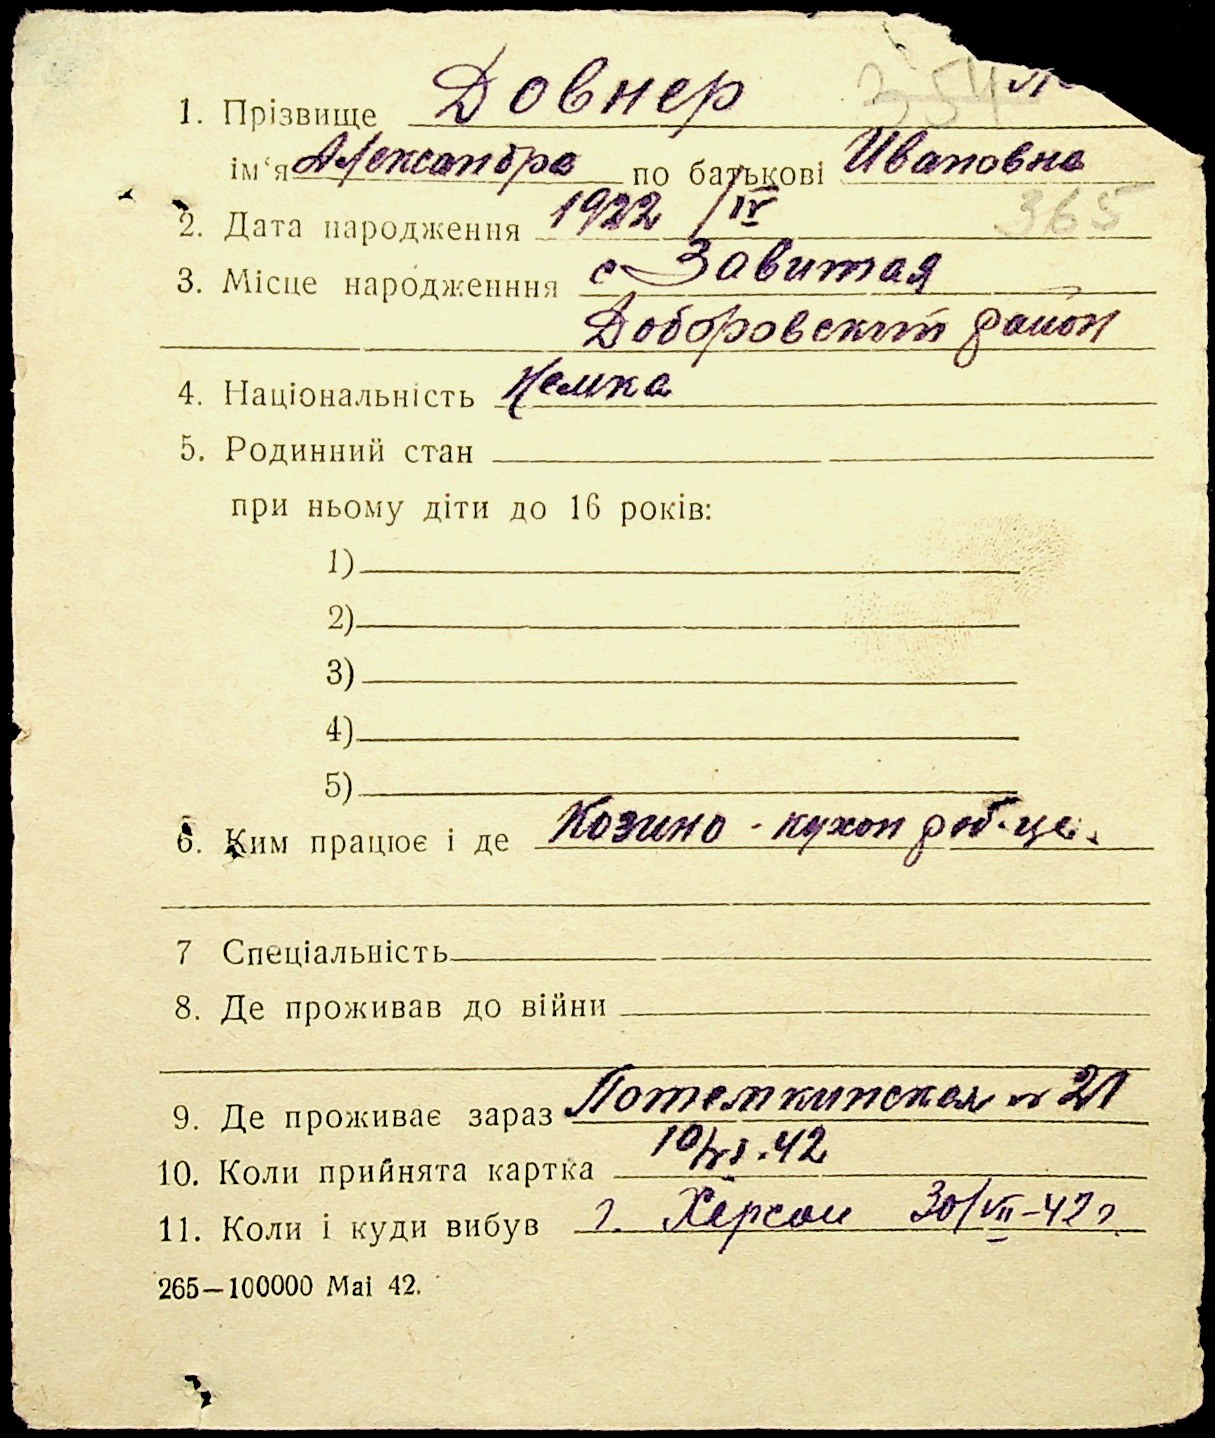 354
1. Прізвище Довнер
ім'я Александра по батькові Ивановна
2. Дата народження 1922 /IV
365
3. Місце народженння с Завитая
Доборовский район
4. Національність Немка
5. Родинний стан
при ньому діти до 16 років:
1)
2)
3)
4)
5)
6. Ким працює і де Козино - кухон роб-це.
7 Спеціальність
8. Де проживав до війни
9. Де проживає зараз Потемкинская № 21
10. Коли прийнята картка 10/VI.42
11. Коли і куди вибув г. Херсон 30/VII-42 г.
265—100000 Mai 42.